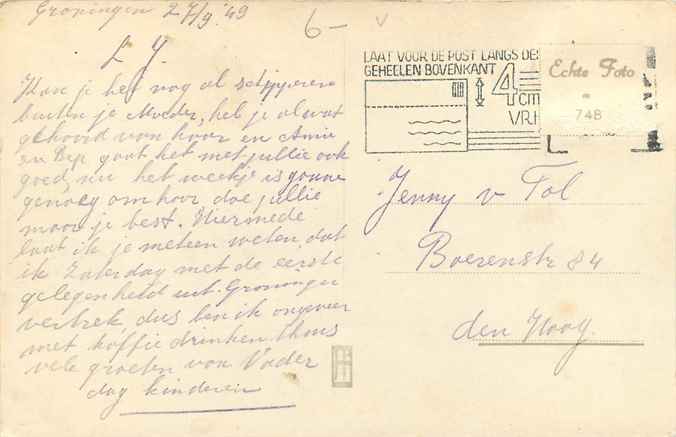 Groningen 27/9 '49
6-
L J.
Kan je het nog al schipperen
buiten je Moeder, heb je al wat
gehoord van haar en Annie
en Bep gaat het met jullie ook
goed, nu het weekje is gauw
genoeg om hoor doe jullie
maar je best. Hiermede
laat ik je meteen weten dat
ik Zaterdag met de eerste
gelegenheid uit Groningen
vertrek, dus ben ik ongeveer
met koffie drinken thuis
vele groeten van Vader
dag kinderen
LAAT VOOR DE POST LANGS DE
GEHEELEN BOVENKANT
4 cM
VRI
Echte Foto
748
Jenny v Tol
Boerenstr 84
den Haag.